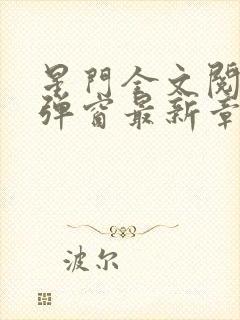 星門全文閱
彈窗最新章
波尔